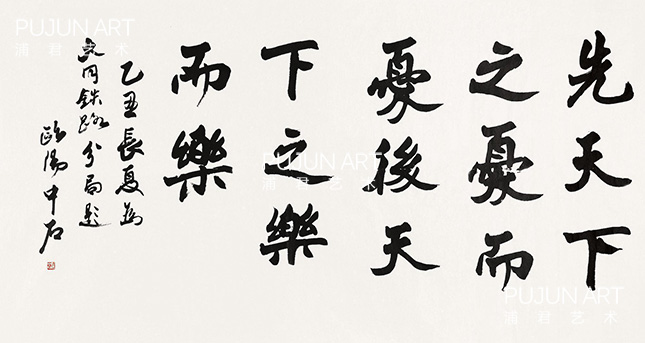 先天下
之憂而
憂後天
下之樂
而樂
乙丑長夏為
大同鉄路分局题
歐陽中石
PUJUN ART
浦君艺术
PUJUN ART
浦君艺术
PUJUN ART
浦君艺术